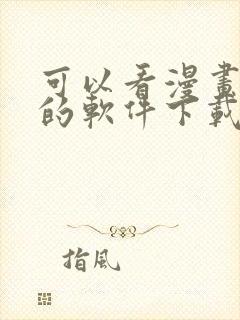 可以看漫畫
的軟件下載
指風